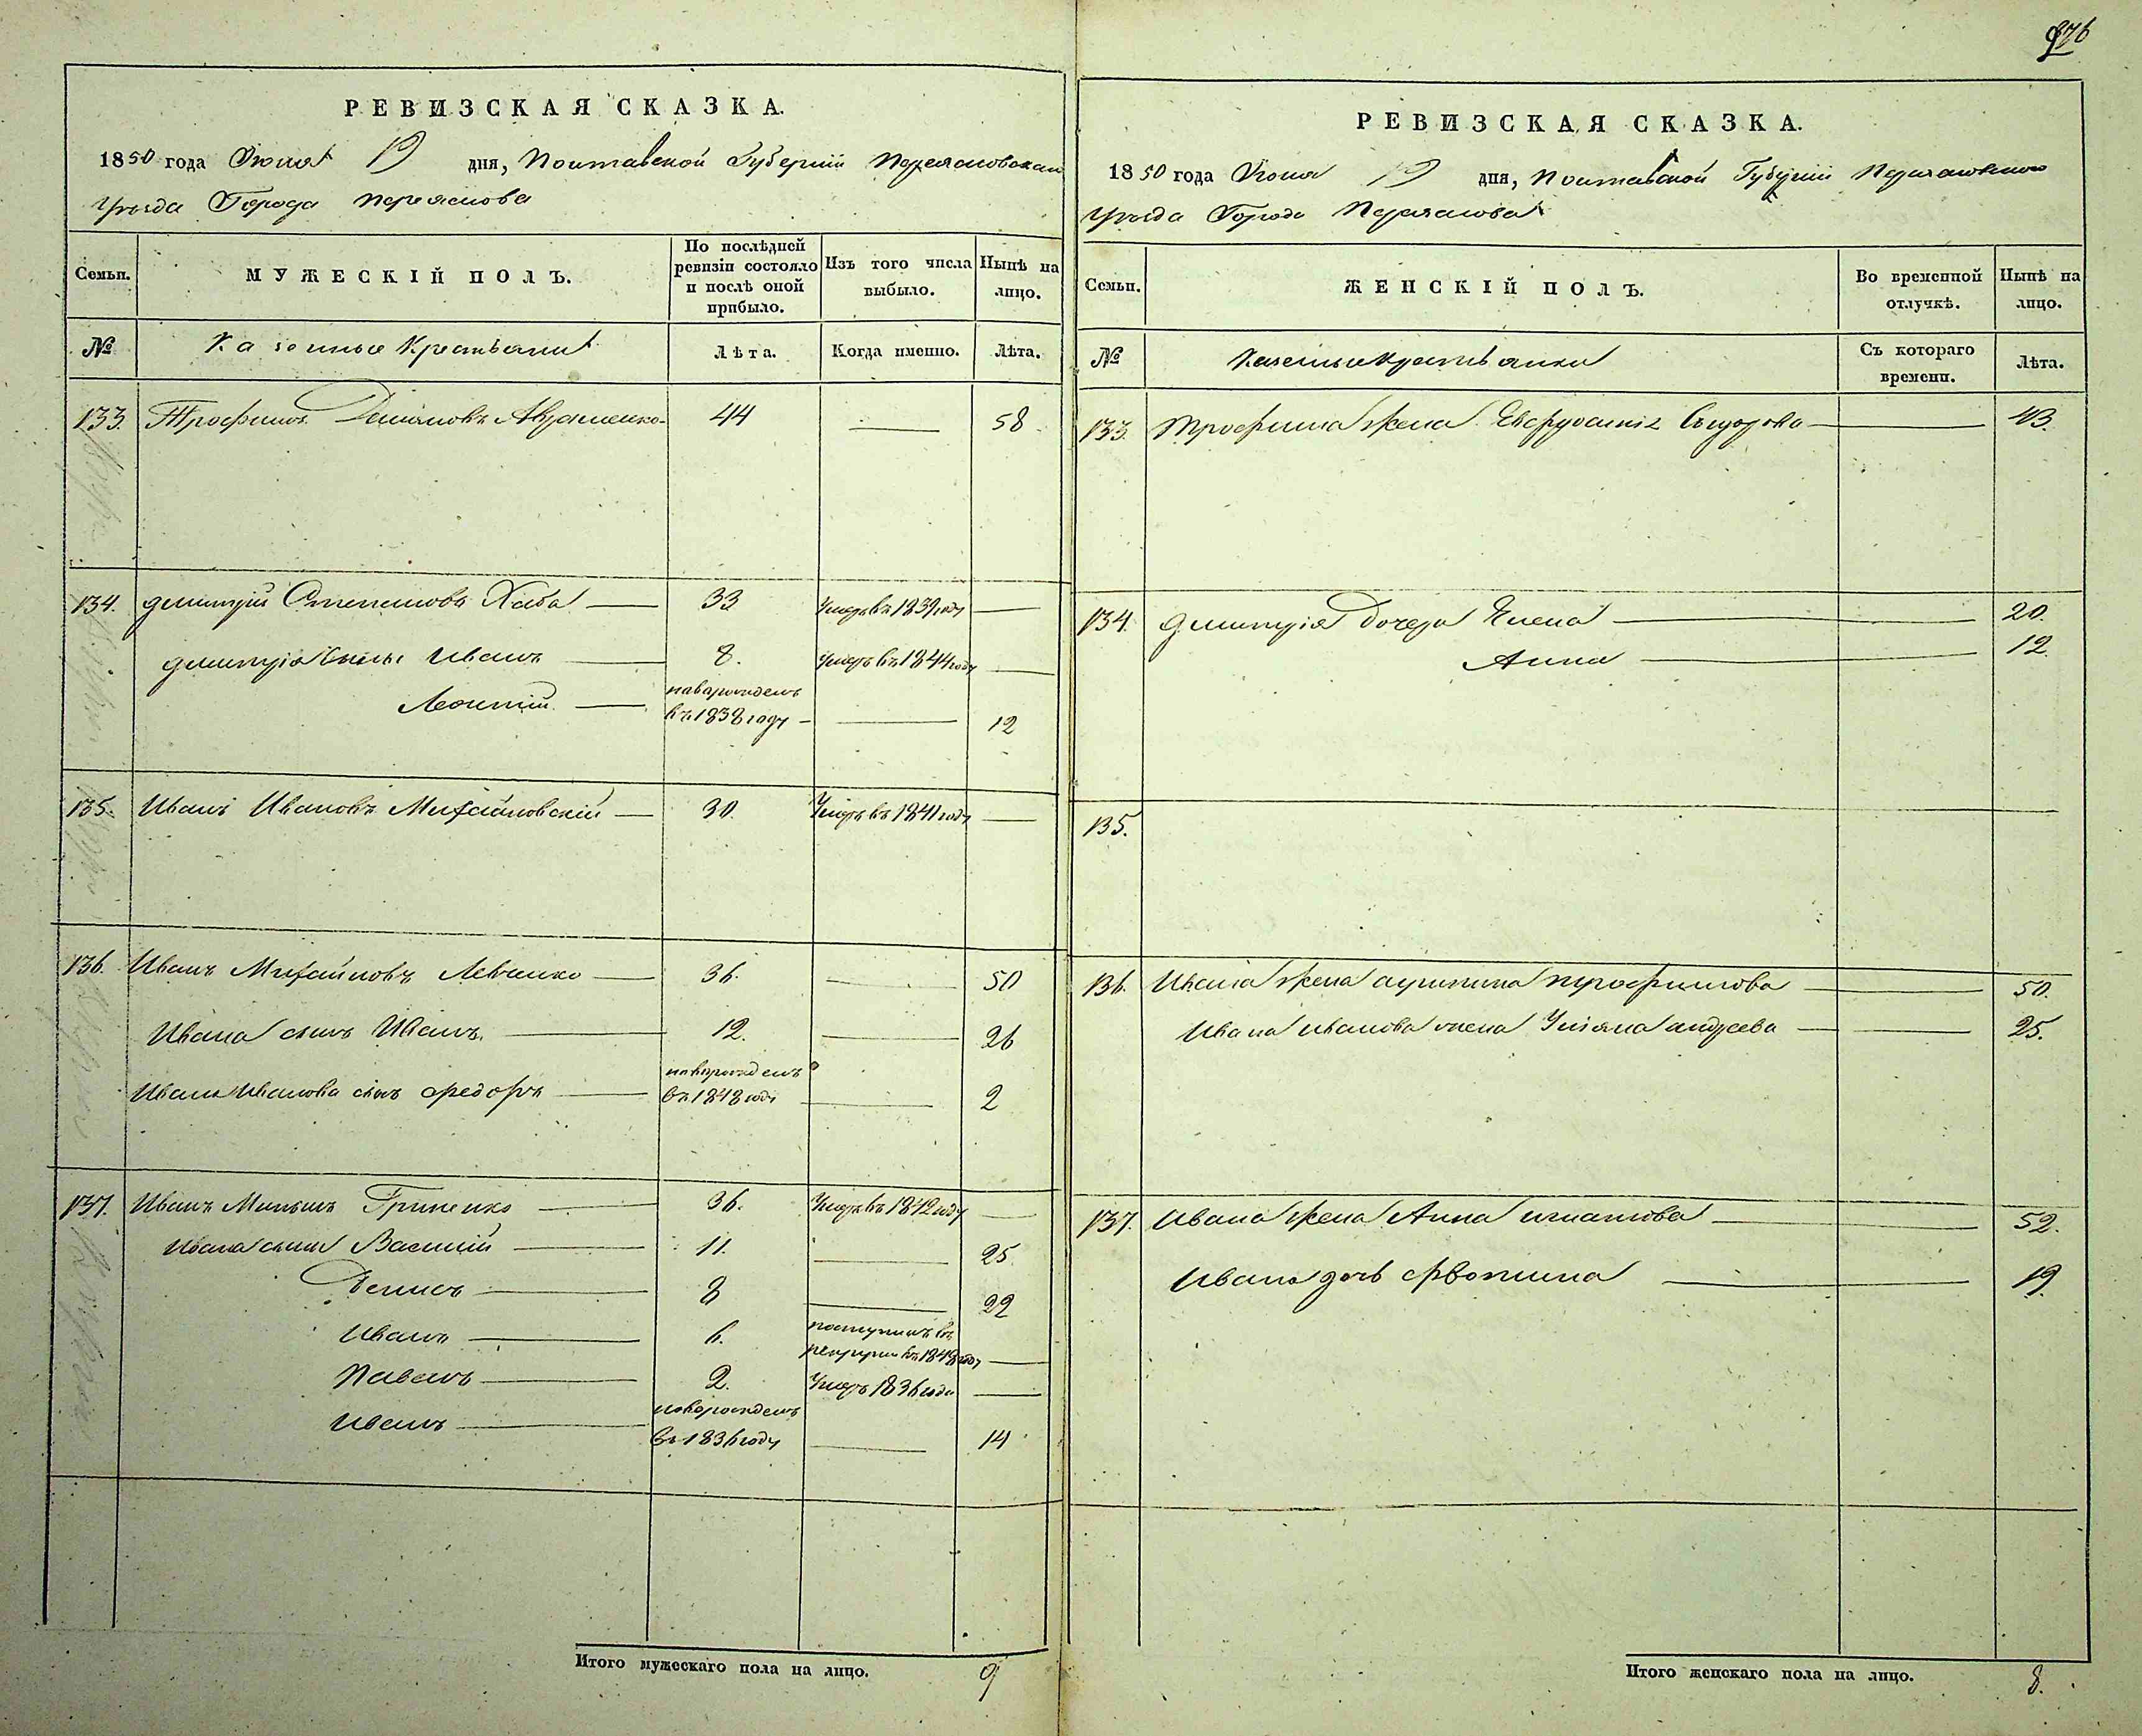 976
РЕВИЗСКАЯ СКАЗКА.
1850 года Июня 19 дня, Полтавской Губерніи Переясловскаго
Уѣзда Города Переяслова
Семьи. МУЖЕСКІЙ ПОЛЪ. По послѣдней ревизіи состояло и послѣ оной прибыло. Изъ того числа выбыло. Нынѣ на лицо.
№ Казенные Крестьяне Лѣта. Когда именно. Лѣта.
133. Трофимъ Демяновъ Авраменко 44 — 58
134. Дмитрій Степановъ Хаба — 33 Умеръ въ 1839 году —
Дмитрія сыны Иванъ — 8. Умеръ въ 1844 году —
Леонтій — новорожденъ въ 1838 году — — 12
135. Иванъ Ивановъ Михайловскій — 30. Умеръ въ 1841 году —
136. Иванъ Михайловъ Леванко — 36. — 50
Ивана сынъ Иванъ. — 12. — 26
Ивана Иванова сынъ Федоръ — новорожденъ въ 1848 году — 2
137. Иванъ Гриненко — 36. Умеръ въ 1842 году —
Ивана сыны Василій — 11. — 25.
Денисъ — 8 — 22
Иванъ — 6. поступилъ въ рекруты въ 1848 году —
Павелъ — 2. Умеръ 1836 года —
Иванъ — новорожденъ въ 1836 году — 14
Итого мужескаго пола на лицо. 9
РЕВИЗСКАЯ СКАЗКА.
1850 года Июня 19 дня, Полтавской Губерніи Переясловскаго
Уѣзда Города Переяслова
Семьи. ЖЕНСКІЙ ПОЛЪ. Во временной отлучкѣ. Нынѣ на лицо.
№ Казенные Крестьянки Съ котораго времени. Лѣта.
133. Трофима жена Евфросинія Сыдорова — 43.
134. Дмитрія Дочеря Елена — 20.
Анна — 12.
135.
136. Ивана жена Трофимова — 50.
Ивана Иванова жена Уліяна Андреева — 25.
137. Ивана жена Анна Игнатова — 52.
Ивана дочь — 19.
Итого женскаго пола на лицо. 8.